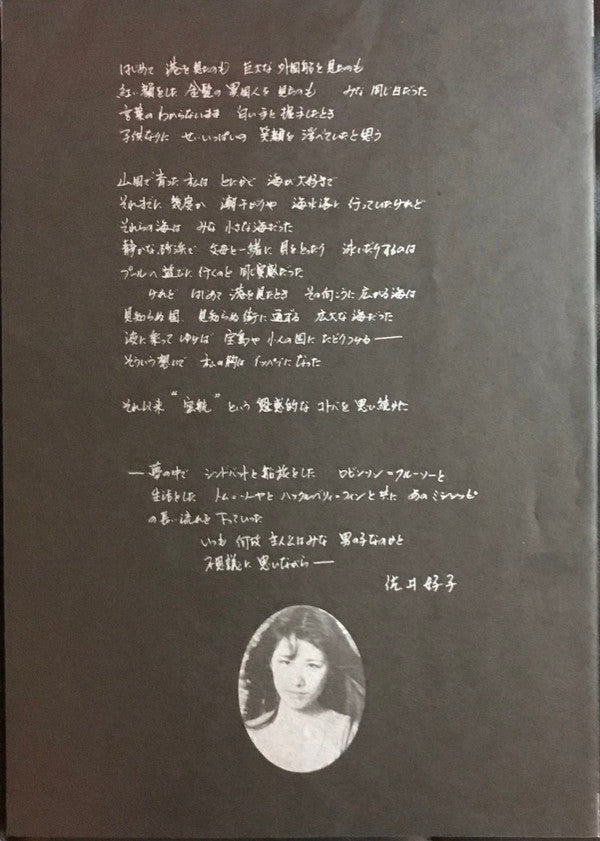 はじめて 港を見たのも 巨大な 外国船を見たのも
紅い顔をした 金髪の異国人を 見たのも みな 同じ日だった
言葉の わからないまま 白い手と 握手したとき
子供なりに せいいっぱいの 笑顔を 浮べていたと思う
山国で育った 私は とにかく 海が大好きで
それまでに 幾度か 潮干がりや 海水浴に 行っていたけれど
それらの海は みな 小さな海だった
静かな砂浜で 父母と一緒に 貝をとったり 泳いだりするのは
プールへ 遊びに行くのと 同じ実感だった
けれど はじめて 港を見たとき その向こうに 広がる海は
見知らぬ国 見知らぬ街に 通ずる 広大な海だった
波に乗って ゆけば 宝島や 小人の国に たどりつける──
そういう想いで 私の胸は イッパイになった
それ以来 “密航” という 魅惑的な コトバを 思い続けた
──夢の中で シンドバットと船旅をした ロビンソン＝クルーソーと
生活をした トム＝ソーヤと ハックルベリィ＝フィンと共に あのミシシッピ
の長い流れを 下っていった
いつも 何故 主人公はみな 男の子なのかと
不思議に 思いながら──
佐井好子